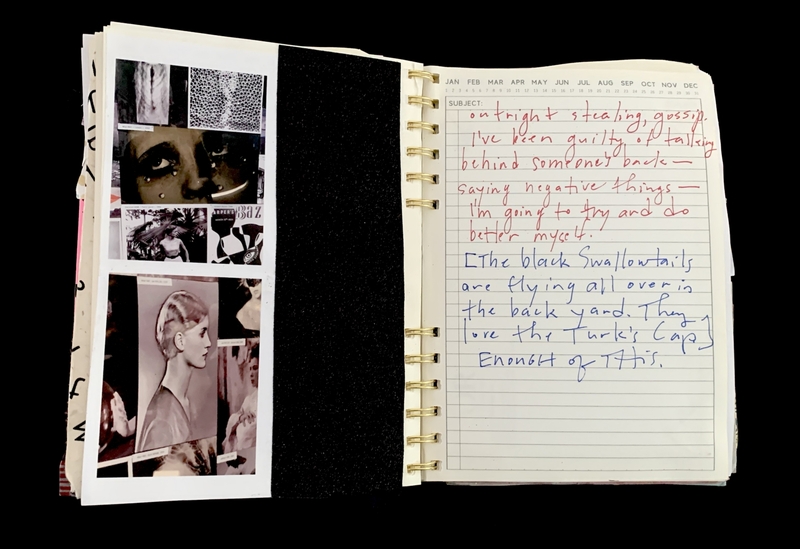 JAN FEB MAR APR MAY JUN JUL AUG SEP OCT NOV DEC
SUBJECT:
outright stealing, gossip.
I've been guilty of talking
behind someone's back—
saying negative things—
I'm going to try and do
better myself.
[The black Swallowtails
are flying all over in
the back yard. They
love the Turk's Cap]
ENOUGH of THis.